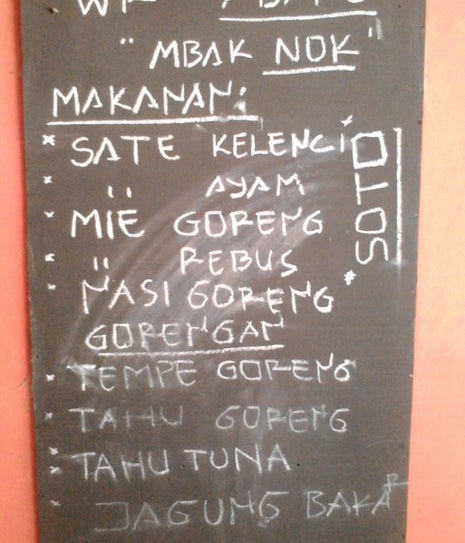 " MBAK NOK "
MAKANAN:
* SATE KELENCI
* " AYAM
* MIE GORENG
* " REBUS
* NASI GORENG
GORENGAN
* TEMPE GORENG
* TAHU GORENG
* TAHU TUNA
* JAGUNG BAKAR
* SOTO